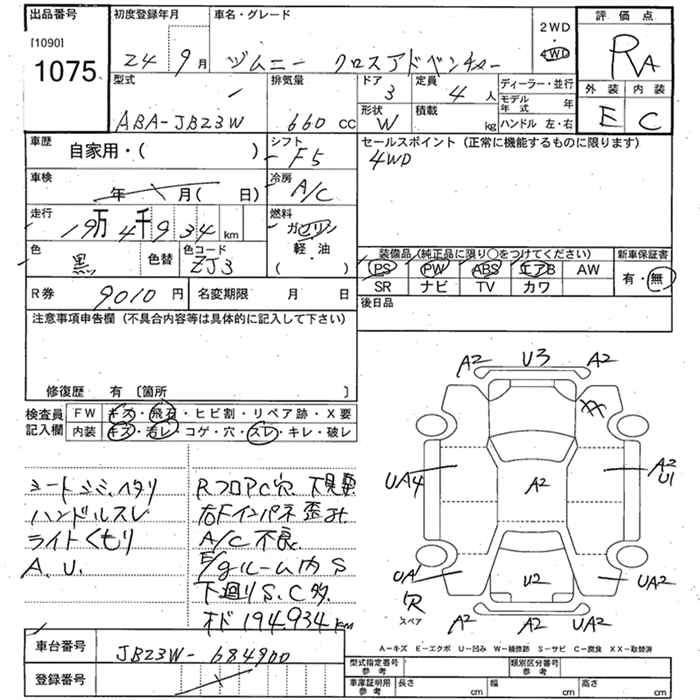 出品番号
[1090]
1075
初度登録年月
24年9月
車名・グレード
ジムニー クロスアドベンチャー
2WD
・
4WD
評価点
RA
外装 内装
E C
型式
ABA-JB23W
排気量
660 cc
ドア
3
定員
4 人
形状
W
積載
kg
ディーラー・並行
モデル年式 年
ハンドル 左・右
車歴
自家用・( )
シフト
F5
セールスポイント (正常に機能するものに限ります)
4WD
車検
年 月( 日)
冷房
A/C
走行
19万4千934 km
燃料
ガソリン
軽・油
( ・ )
色
黒
色替
色コード
ZJ3
装備品 (純正品に限り○をつけてください)
PS PW ABS エアB AW
SR ナビ TV カワ
新車保証書
有・無
R券
9010 円
名変期限 月 日
後日品
注意事項申告欄 (不具合内容等は具体的に記入して下さい)
修復歴 有 〔箇所 〕
検査員記入欄
FW キズ・飛石・ヒビ割・リペア跡・X要
内装 キズ・汚レ・コゲ・穴・スレ・キレ・破レ
シートシミ、ヘタリ
ハンドルスレ
ライトくもり
A.U.
RフロアC穴
右Fインパネ歪み
A/C不良
E/gルーム内S
下廻りS、C多
オド194934km
A2 U3 A2
XX
UA4 A2 A2 U1
UA U2 UA2
R
スペア
A2 A2 UA2
A-キズ E-エクボ U-凹み W-補修跡 S-サビ C-腐食 XX-取替済
車台番号
JB23W-684900
登録番号
型式指定番号 参考
類別区分番号 参考
車庫証明用 参考
長さ cm
幅 cm
高さ cm